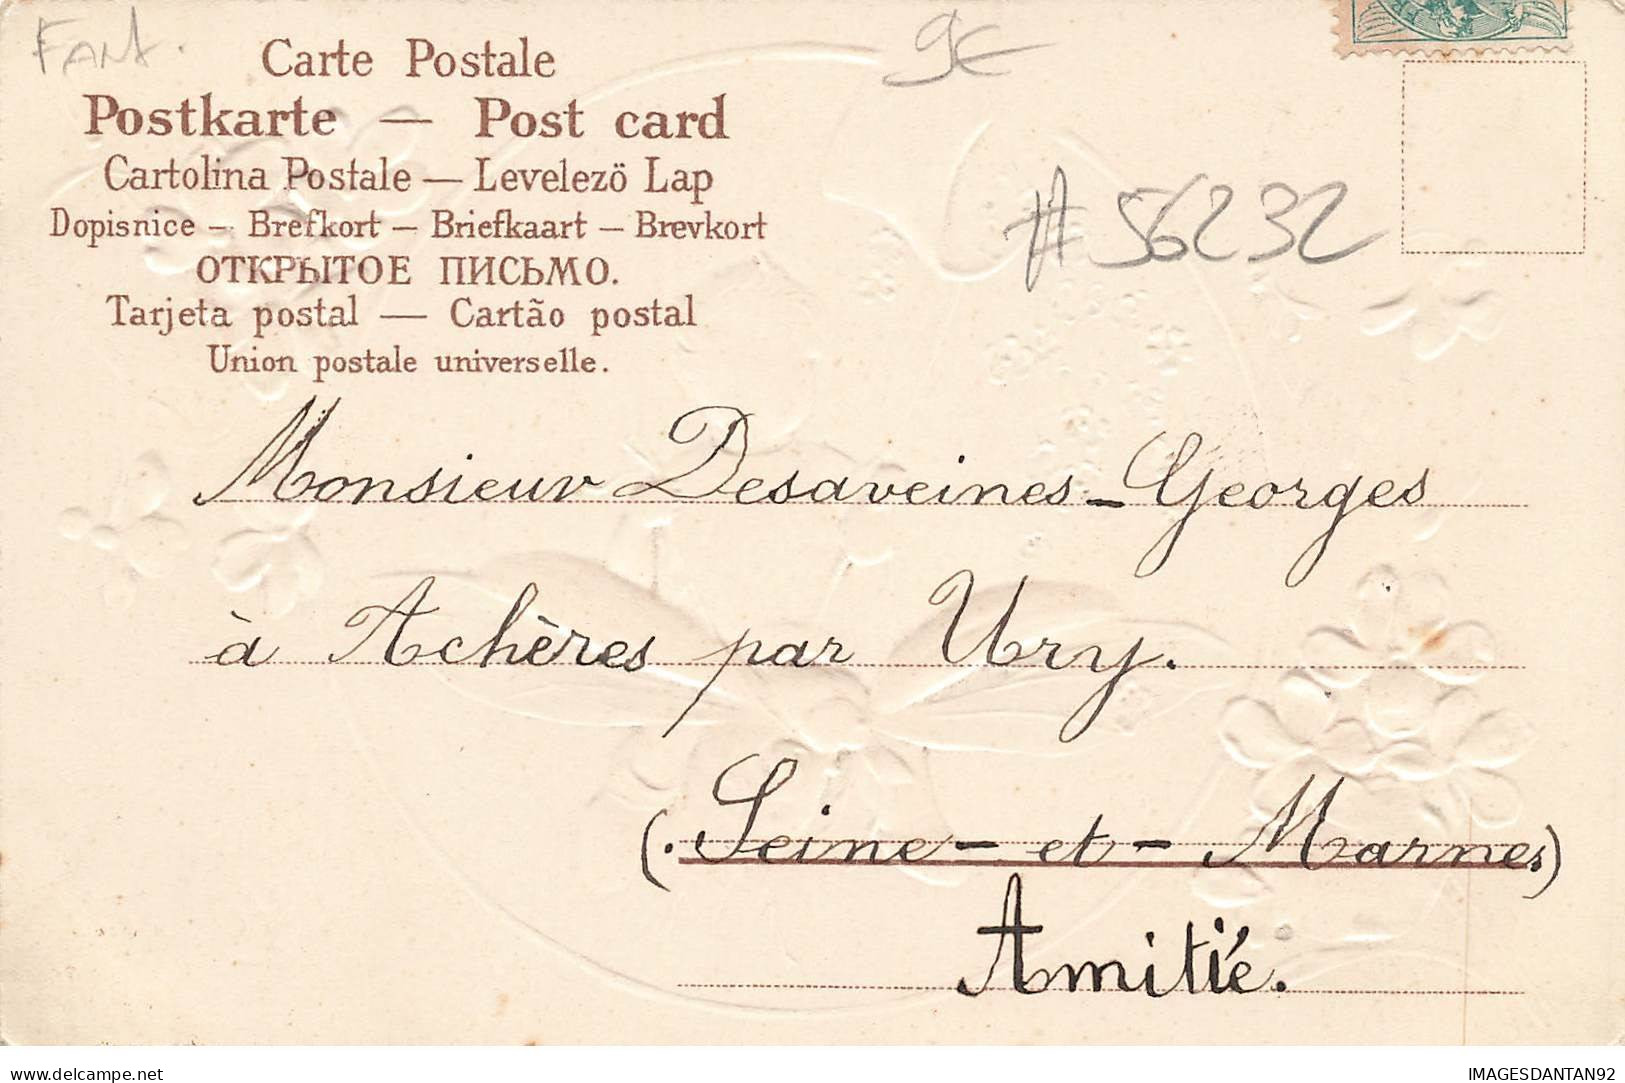 Fant.
9€
Carte Postale
Postkarte — Post card
Cartolina Postale — Levelezö Lap
Dopisnice – Brefkort – Briefkaart – Brevkort
ОТКРЫТОЕ ПИСЬМО.
Tarjeta postal — Cartão postal
Union postale universelle.
#56232
Monsieur Desaveines - Georges
à Achères par Ury.
(Seine - et - Marne)
Amitié.
www.delcampe.net
IMAGESDANTAN92